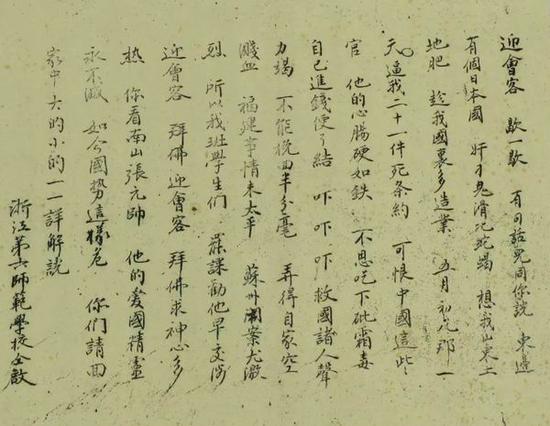 迎會客 歇一歇 有句話兒同你説 東邊
有個日本國 奸刁鬼滑比蛇蝎 想我山東土
地肥 趁我國裏多造業 五月初九那一
天 逼我二十一件死条約 可恨中國這些
官 他的心腸硬如鉄 不思吃下砒霜毒
自己進錢便了結 吓 吓 吓 救國諸人聲
力竭 不能挽回半分毫 弄得自家空
濺血 福建事情未太平 蘇州案尤激
烈 所以我班學生們 罷課勸他早交涉
迎會客 拜佛迎會客 拜佛求神心多
热 你看南山張元帥 他的爱國精靈
永不滅 如今國勢這樣危 你們請回
家中 大的小的一一詳解説
浙江第六師範學校仝啟